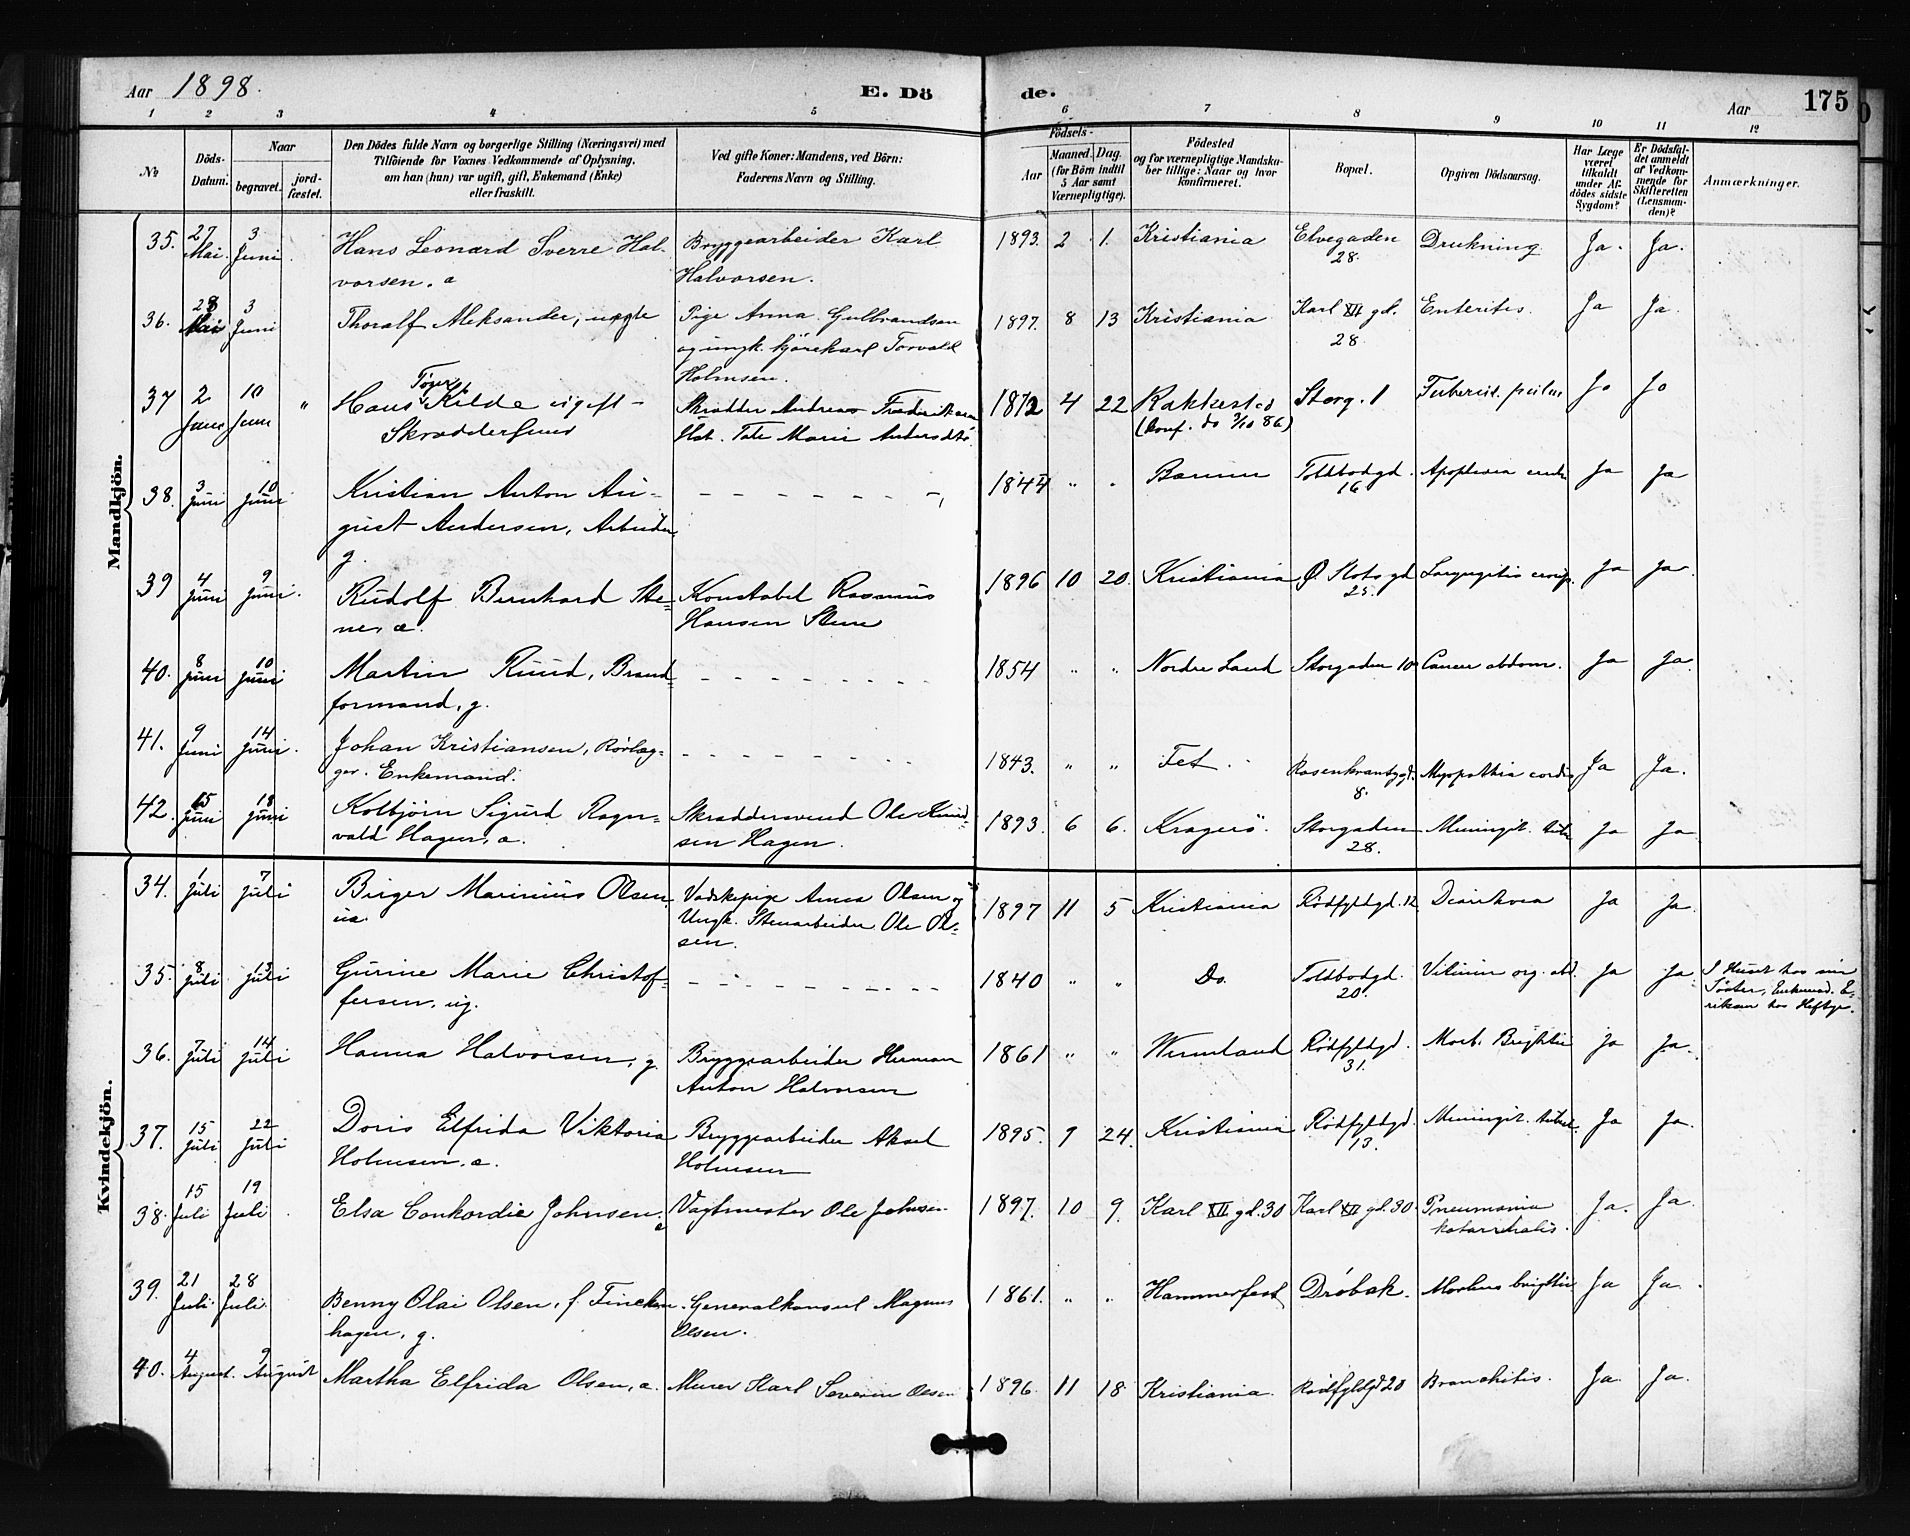 Aar 1898.
E. Dö de.
Aar 175
1 2 3 4 5 6 7 8 9 10 11 12
No
Döds-Datum.
Naar
begravet.
jord-fæstet.
Den Dödes fulde Navn og borgerlige Stilling (Næringsvei) med
Tilföiende for Voxnes Vedkommende af Oplysning,
om han (hun) var ugift, gift, Enkemand (Enke)
eller fraskilt.
Ved gifte Koner: Mandens, ved Börn:
Faderens Navn og Stilling.
Födsels-
Aar
Maaned. Dag.
(for Börn indtil
5 Aar samt
Værnepligtige).
Födested
og for værnepligtige Mandska-
ber tillige: Naar og hvor
konfirmeret.
Bopæl.
Opgiven Dödsaarsag.
Har Læge
været
tilkaldt
under Af-
dödes sidste
Sygdom?
Er Dödsfal-
det anmeldt
af Vedkom-
mende for
Skifteretten
(Lensman-
den)?
Anmærkninger.
Mandkjön.
35. 27 Mai. 3 Juni Hans Leonard Sverre Hal- Bryggearbeider Karl 1893. 2 1. Kristiania Elvegaden 28. Drukning Ja. Ja.
vorsen. a Halvorsen.
36. 28 Mai 3 Juni Thoralf Aleksander, uægte Pige Anna Gulbrandsen 1897. 8 13 Kristiania Karl XII gd. 28 Enterites. Ja Ja.
og ungk. kjörekarl Torvald
Holmsen.
37 2 Juni 10 Juni " Hans Kilde ugift - Skrædder Andreas 1872 4 22 Storg. 1 Tubercul. Ja Ja
Skræddersvend Marie (Konf. do 3/10 86)
38. 3 Juni 10 Juni Kristian Anton Au- 1844 " " Bærum Toldbodgd. 16 Apoplexia Ja Ja
gust Andersen, Arbeider
g.
39 4 Juni 9 Juni. Rudolf Bernhard Ste- Konstabel Rasmus 1896 10 20. Kristiania Ø Slots gd 25. Laryngitis croup. Ja Ja.
ne, a. Hansen Stene
40. 8 Juni 10 Juni Martin Ruud, Brand- 1854 " " Nordre Land Storgaden 10 Cancer abdom. Ja Ja.
formand, g.
41. 9 Juni 14 Juni. Johan Kristiansen, Rörlæg- 1843. " " Fet. Rosenkrantzgd. 8. Myopathia cordis Ja Ja.
ger. Enkemand.
42. 15 Juni 18 Juni Kolbjörn Sigurd Ragn- Skræddersvend Ole Knud- 1893. 6 6. Kragerö. Storgaden 28. Meningit. tube Ja Ja
vald Hagen, a. sen Hagen.
Kvindekjön.
34. 1 Juli 7 Juli Birger Marinius Olsen, Vadskepige Anna Olsen og 1897 11 5 Kristiania Rödfyldgd. 12 Diarrhoea Ja Ja.
ua. Ungk. Stenarbeider Ole Ol-
sen.
35. 8 Juli 13 Juli Gurine Marie Christof- 1840 " " Do. Toldbodgd. 20. Vitium org. abd. Ja Ja. I Huset hos sin
fersen. ug. Söster, Enkemad. E-
riksen hos Heftye.
36. 7 Juli 14 Juli Hanna Halvorsen, g. Bryggearbeider Herman 1861 " " Wermland Rödfyldgd. 31. Morb. Brightii Ja Ja.
Anton Halvorsen
37. 15 Juli 22 Juli Doris Elfrida Viktoria Bryggearbeider Aksel 1895. 9 24. Kristiania Rödfyldgd. 13. Meningit. tuberc. Ja Ja.
Holmsen. a. Holmsen
38. 15 Juli 19 Juli Elsa Conkordie Johnsen. a Vagtmester Ole Johnsen 1897. 10 9. Karl XII gd. 30 Karl XII gd. 30. Pneumonia Ja. Ja.
katarrhalis.
39. 21 Juli 28 Juli. Benny Olai Olsen, f. Fincken- Generalkonsul Magnus 1861. " " Hammerfest Dröbak. Morbus brightii Ja Ja.
hagen, g. Olsen.
40. 4 August. 9 August Martha Elfrida Olsen, a. Murer Karl Severin Olsen 1896. 11 18 Kristiania. Rödfyldgd 20 Bronchitis. Ja. Ja.